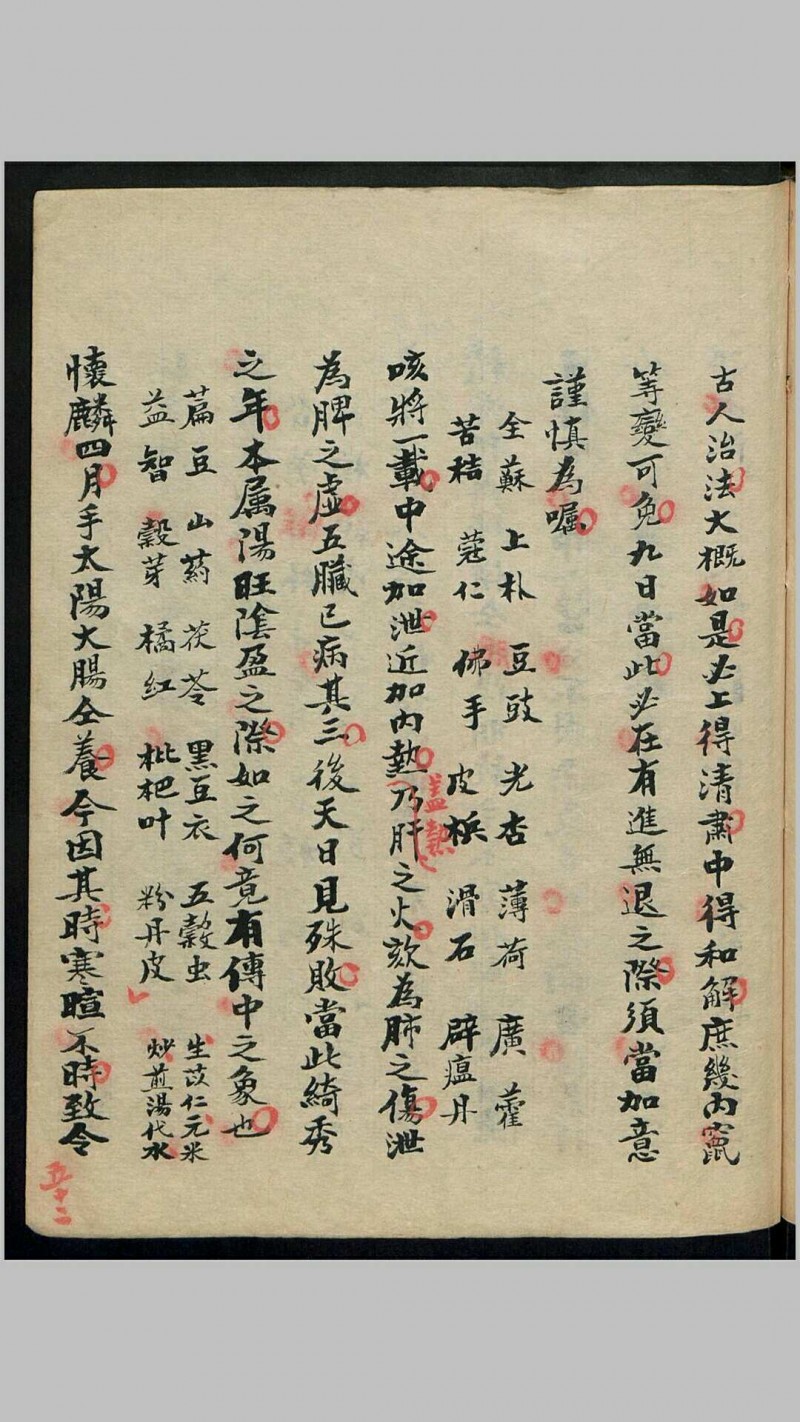 古人治法大概如是必上得清肅中得和解庶幾內竄
等變可免九日當此必在有進無退之際須當加意
謹慎為囑
全蘇 上朴 豆豉 光杏 薄荷 廣藿
苦桔 蔻仁 佛手 皮梹 滑石 辟瘟丹
咳將一載中途加泄近加內熱乃肝之火欬為肺之傷泄
蓋熱
為脾之虛五臟已病其三後天日見殊敗當此綺秀
之年本属陽旺陰盈之際如之何竟有傳中之象也
萹豆 山药 茯苓 黑豆衣 五穀虫 生苡仁元米
益智 穀芽 橘紅 枇杷叶 粉丹皮 炒煎湯代水
懷麟四月手太陽大腸仝養今因其時寒暄不時致令
五十二